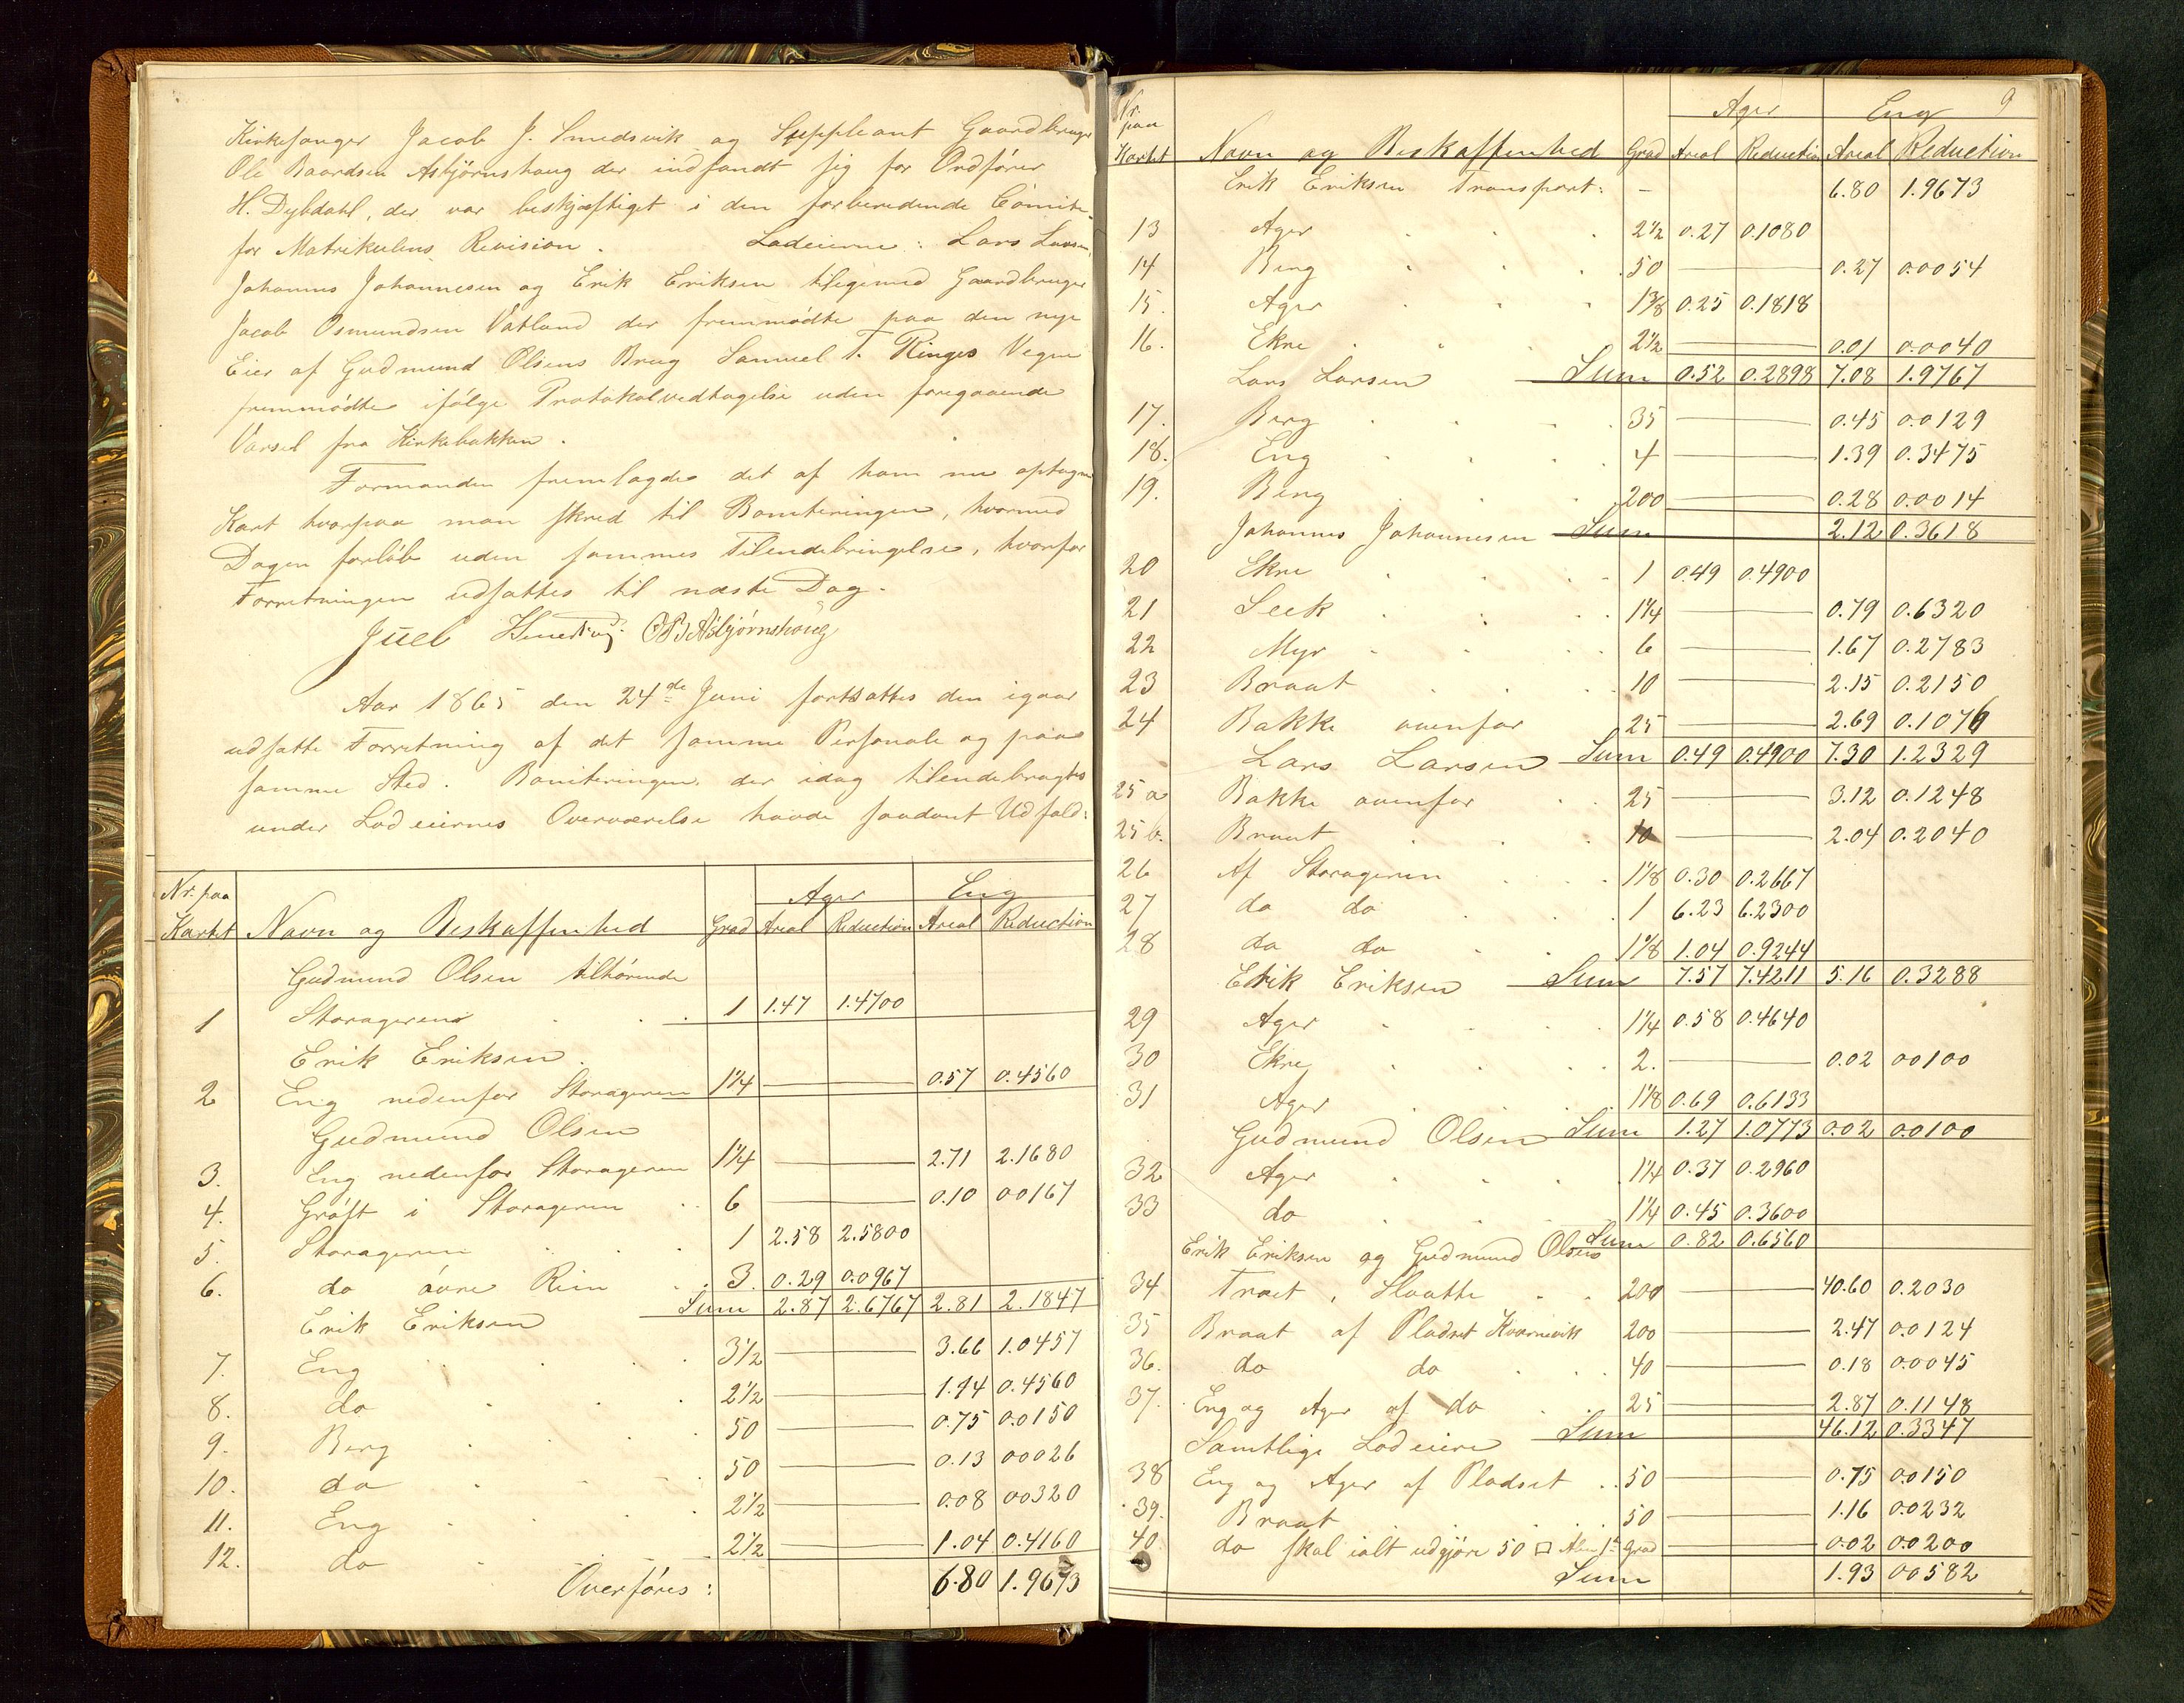 Kirkesanger Jacob J. Smedsvik og Suppleant Gaardbruger
Ole Baardsen Asbjørnshaug der indfandt sig for Ordfører
H. Dybdahl, der var beskjæftiget i den forberedende Comite
for Matrikulens Revision. Lodeierne: Lars Larsen,
Johannes Johannesen og Erik Eriksen tilligemed Gaardbruger
Jacob Osmundsen Vatland der fremmødte paa den nye
Eier af Gudmund Olsens Brug Samuel T. Ringes Vegne
fremmødte ifølge Protokolvedtagelse uden foregaaende
Varsel fra Kirkebakken.
Formanden fremlagde det af ham nu optagne
Kart hvorpaa man skred til Boniteringen, hvormed
Dagen forløb uden sammes Tilendebringelse, hvorfor
Forretningen udsattes til næste Dag.
Juel Smedsvig OBAsbjørnshaug
Aar 1865 den 24de Juni fortsattes den igaar
udsatte Forretning af det samme Personale og paa
samme Sted. Boniteringen der idag tilendebragtes
under Lodeiernes Overværelse havde saadant Udfald:
Nr. paa Kartet Navn og Beskaffenhed Grad Ager Areal Reduction Eng Areal Reduction
Gudmund Olsen tilhørende
1 Storageren 1 1.47 1.4700
Erik Eriksen.
2 Eng nedenfor Storageren 1 1/4 0.57 0.4560
Gudmund Olsen
3. Eng nedenfor Storageren 1 1/4 2.71 2.1680
4. Grøft i Storageren 6 0.10 00167
5. Storageren 1 2.58 2.5800
6. do øvre Rin 3. 0.29 0.0967
Sum 2.87 2.6767 2.81 2.1847
Erik Eriksen
7. Eng 3 1/2 3.66 1.0457
8. do 2 1/2 1.14 0.4560
9. Berg 50 0.75 0.0150
10. do 50 0.13 00026
11. Eng 2 1/2 0.08 00320
12. do 2 1/2 1.04 0.4160
Overføres: 6.80 1.9673
9
Nr. paa Kartet Navn og Beskaffenhed Grad Ager Areal Reduction Eng Areal Reduction
Erik Eriksen Transport: - 6.80 1.9673
13 Ager 2 1/2 0.27 0.1080
14 Berg 50 0.27 0.0054
15. Ager 1 3/8 0.25 0.1818
16. Ekre 2 1/2 0.01 0.0040
Lars Larsen Sum 0.52 0.2898 7.08 1.9767
17. Berg 35 0.45 0.0129
18. Eng 4 1.39 0.3475
19. Berg 200 0.28 0.0014
Johannes Johannesen Sum 2.12 0.3618
20 Ekre 1 0.49 0.4900
21 Leek 1 1/4 0.79 0.6320
22 Myr 6 1.67 0.2783
23 Braat 10 2.15 0.2150
24 Bakke ovenfor 25 2.69 0.1076
Lars Larsen Sum 0.49 0.4900 7.30 1.2329
25 a Bakke ovenfor 25 3.12 0.1248
25 b. Braat 10 2.04 0.2040
26 Af Storageren 1 1/8 0.30 0.2667
27 do do 1 6.23 6.2300
28 do do 1 1/8 1.04 0.9244
Erik Eriksen Sum 7.57 7.4211 5.16 0.3288
29 Ager 1 1/4 0.58 0.4640
30 Ekre 2. 0.02 00100
31 Ager 1 1/8 0.69 0.6133
Gudmund Olsen Sum 1.27 1.0773 0.02 0.0100
32 Ager 1 1/4 0.37 0.2960
33 do 1 1/4 0.45 0.3600
Sum 0.82 0.6560
Erik Eriksen og Gudmund Olsen
34 Træet, Slaatte 200 40.60 0.2030
35 Braat af Pladset Kvernevik 200 2.47 0.0124
36. do do 40 0.18 0.0045
37. Eng og Ager af do 25 2.87 0.1148
Samtlige Lodeiere Sum 46.12 0.3347
38 Eng og Ager af Pladset 50 0.75 0.0150
39. Braat 50 1.16 0.0232
40. do skal ialt udgjøre 50 □ Alen 1te Grad 0.02 0.0200
Sum 1.93 00582